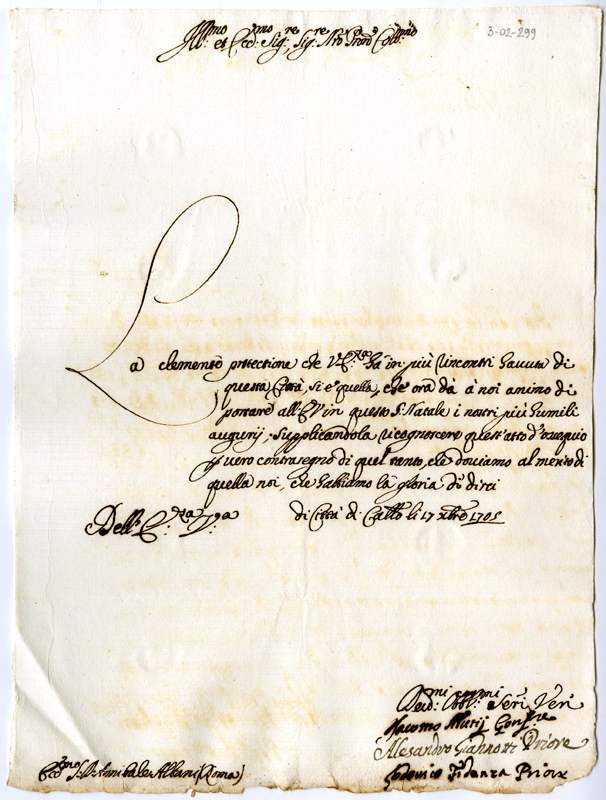 3-02-299
Ill.mo et Ecc.mo Sig.re, Sig.re Nro Pron. Coll.mo
La clementě protectione che V.Ecc.za hà in più rincontri havuta di
questa Città, si è quella, che ora dà à noi animo di
portare all' E.V. in questo S. Natale i nostri più humili
augurij; supplicandola ricognoscere quest'atto d'ossequio
p vero contrasegno di quel tanto, che doviamo al merito di
quella noi, che habbiamo la gloria di dirci
Dell' E.za V.ra
di Città di Catt.o li 17 xbre 1705
Dev.mi Obbl.mi Seri Veri
Giacomo Mutij Gonf.re
Alesandro Giannotti Priore
Lodovico Fidenza Priore
Ecc.mo S. D. Annibale Albani (Roma)